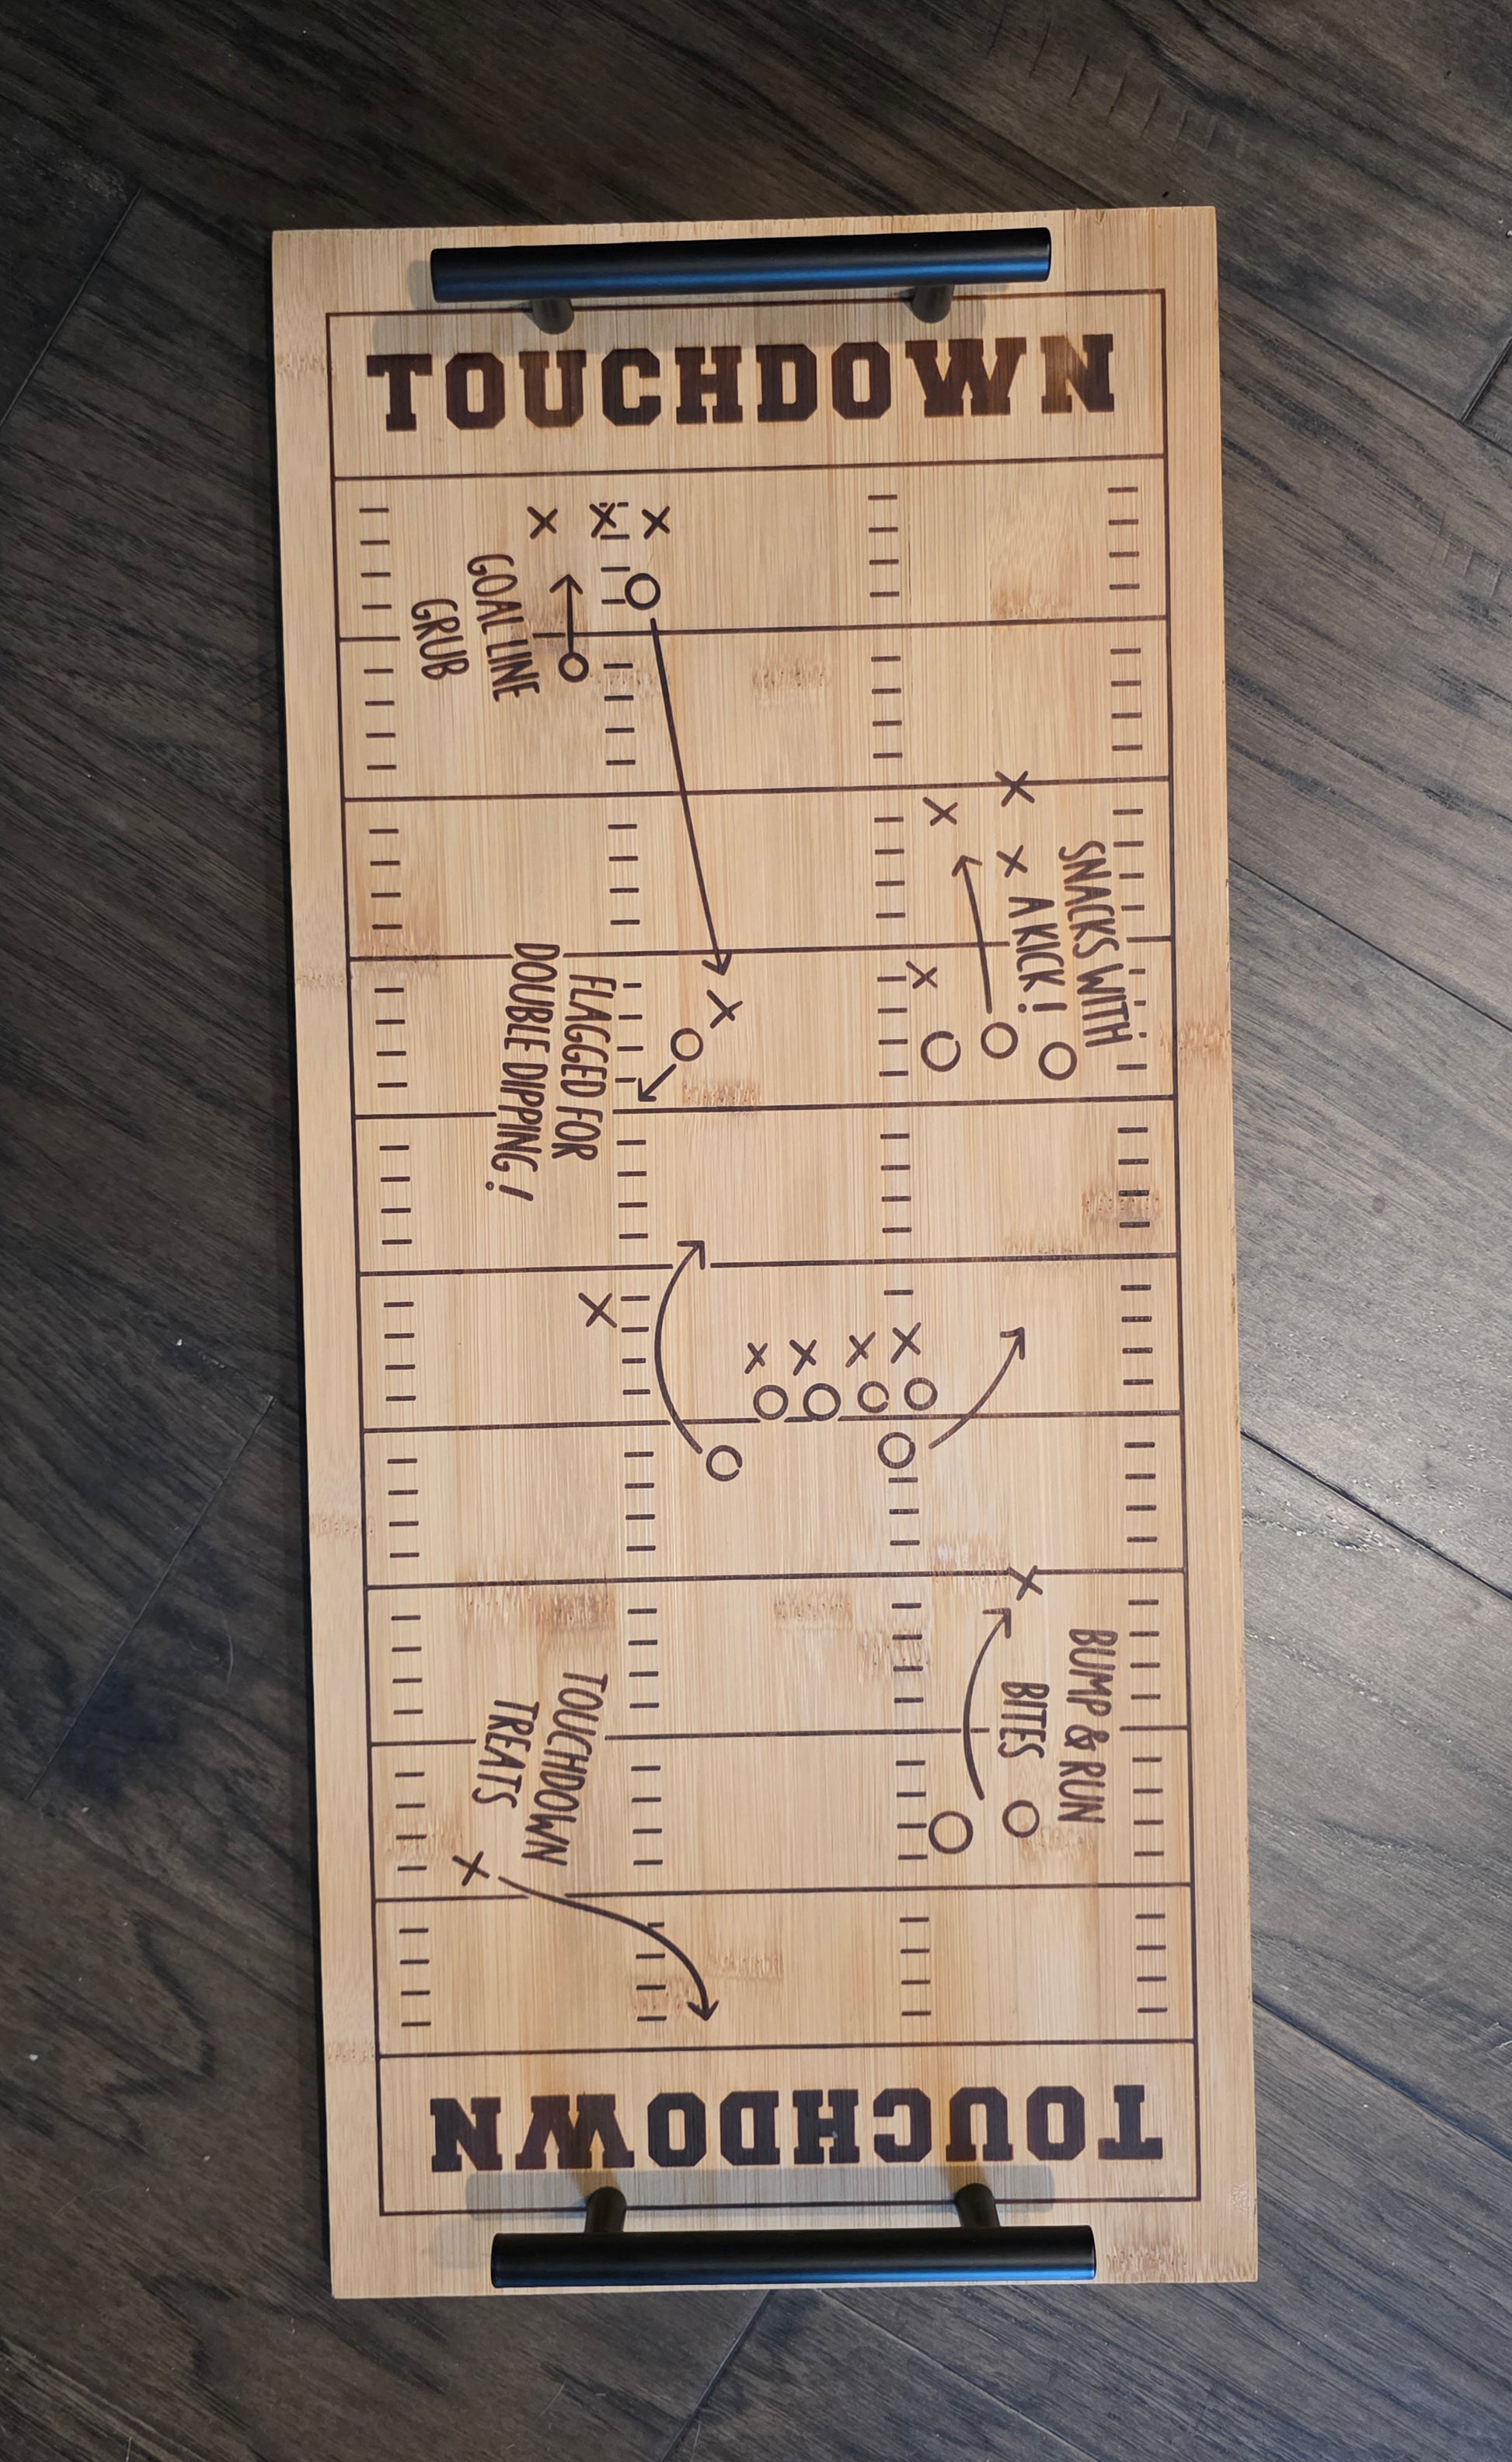 TOUCHDOWN
SNACKS WITH
A KICK!
BUMP & RUN
BITES
GOAL LINE
GRUB
FLAGGED FOR
DOUBLE DIPPING!
TOUCHDOWN
TREATS
TOUCHDOWN